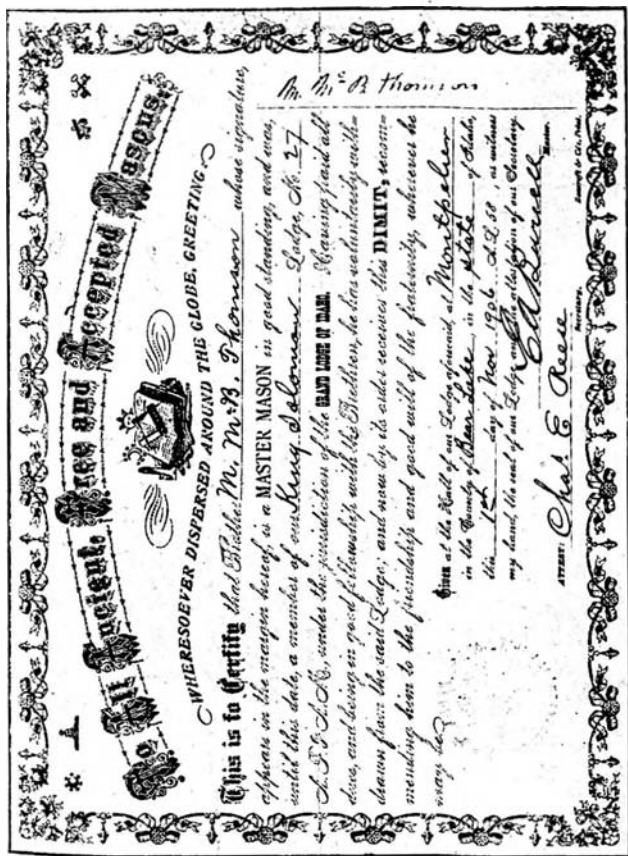 To All Ancient, Free and Accepted Masons,
WHERESOEVER DISPERSED AROUND THE GLOBE, GREETING.
This is to Certify that Brother M. McB Thomson whose signature,
appears in the margin hereof, is a MASTER MASON in good standing, and was,
until this date, a member of our King Solomon Lodge, No. 27
A. F. & A. M., under the jurisdiction of the GRAND LODGE OF IDAHO. Having paid all
dues, and being in good fellowship with the Brethren, he has voluntarily with=
drawn from the said Lodge; and now by its order receives this DIMIT, recom=
mending him to the friendship and good will of the fraternity, wherever he
may be.
M. Mc B Thomson
Given at the Hall of our Lodge aforesaid, at Montpelier
in the County of Bear Lake, in the state of Idaho,
this 1st day of Nov 1906 A.L. 59, as witness
my hand, the seal of our Lodge and the attestation of our Secretary.
E A Burrell Master.
ATTEST: Chas E Rees Secretary.